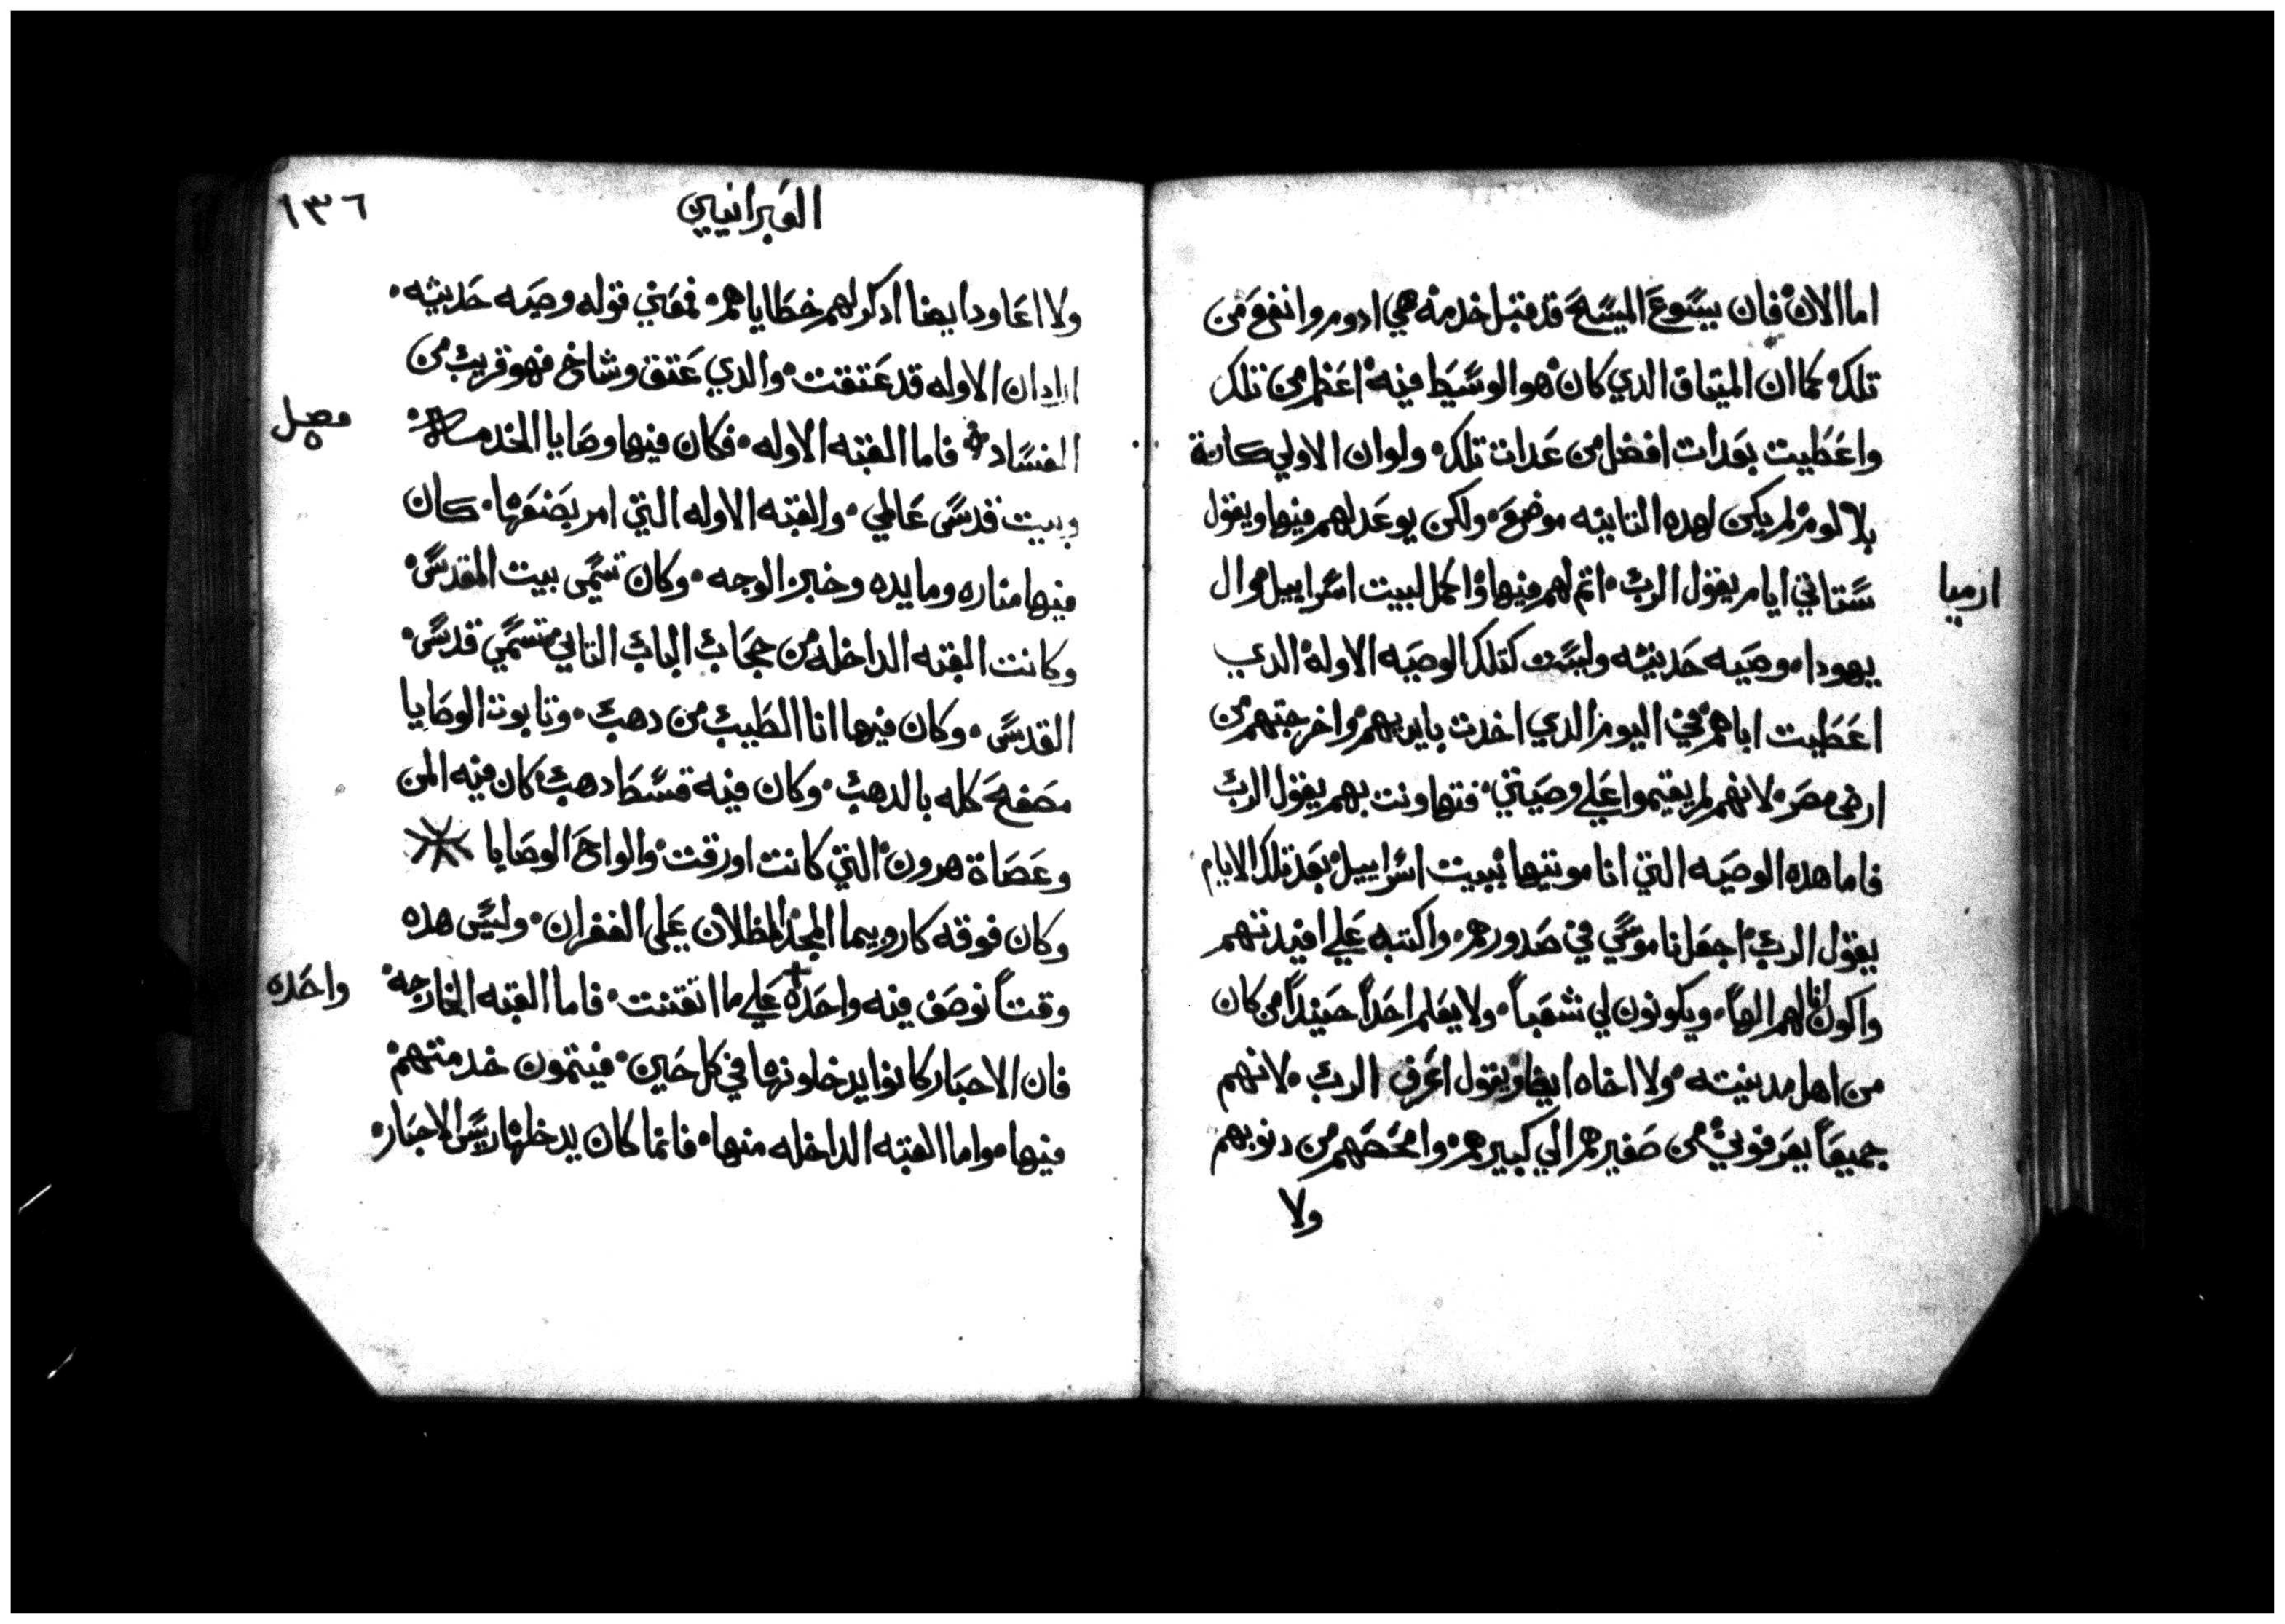 اما الان فان يسوع المسيح قد قبل خدمة هي ادوم وانفع من
تلك كما ان الميتاق الدي كان هو الوسيط فيه اعظم من تلك
واعطيت بعدات افضل من عدات تلك ولو ان الاولي كانة
بلا لوم لم يكن لهده التانيه موضع ولكن يوعد لهم فيها ويقول
ستاتي ايام يقول الرب اتم لهم فيها واكمل لبيت اسراييل وال
ارميا
يهودا وصيه حديثه وليست كتلك الوصيه الاوله الدي
اعطيت اباهم في اليوم الدي اخدت بايديهم واخرجتهم من
ارض مصر لانهم لم يقيموا علي وصيتي فتهاونت بهم يقول الرب
فاما هده الوصيه التي انا موتيها لبيت اسراييل بعد تلك الايام
يقول الرب اجعل ناموسي في صدورهم واكتبه علي افيدتهم
واكون انا لهم الهاً ويكونون لي شعباً ولا يعلم احداً حينيداً من كان
من اهل مدينته ولا اخاه ايضا ويقول اعرف الرب لانهم
جميعاً يعرفوني من صغيرهم الي كبيرهم وامحصهم من دنوبهم
ولا
العبرانيين
١٣٦
ولا اعاود ايضا ادكر لهم خطاياهم فمعني قوله وصيه حديثه
اراد ان الاوله قد عتقت والدي عتق وشاخ فهو قريب من
الفساد فاما القبه الاوله فكان فيها وصايا الخدمه
فصل
وبيت قدس عالمي والقبه الاوله التي امر بصنعها كان
فيها مناره ومايده وخبز الوجه وكان تسمي بيت المقدس
وكانت القبه الداخله من حجاب الباب التاني تسمي قدس
القدس وكان فيها انا الطيب من دهب وتابوت الوصايا
مصفح كله بالدهب وكان فيه قسطا دهب كان فيه المن
وعصاة هرون التي كانت اورقت والواح الوصايا
وكان فوقه كاروبيما المجد المظلان علي الغفران وليس هده
وقتاً نوصف فيه واحده علي ما اتقنت فاما القبه الخارجه
واحده
فان الاحبار كانوا يدخلونها في كل حين فيتمون خدمتهم
فيها واما القبه الداخله منها فانما كان يدخلها ريس الاحبار